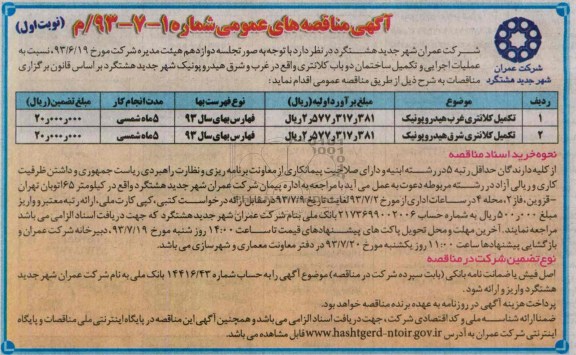 آگهی مناقصه های عمومی شماره ۱-۷-۹۳/م
(نوبت اول)
شرکت عمران
شهر جدید هشتگرد
شرکت عمران شهر جدید هشتگرد در نظر دارد با توجه به صورتجلسه دوازدهم هیئت مدیره شرکت مورخ ۹۳/۶/۱۹، نسبت به
عملیات اجرایی و تکمیل ساختمان دو باب کلانتری واقع در غرب و شرق هیدروپونیک شهر جدید هشتگرد بر اساس قانون برگزاری
مناقصات به شرح ذیل از طریق مناقصه عمومی اقدام نماید:
ردیف موضوع مبلغ برآورد اولیه (ریال) نوع فهرست بها مدت انجام کار مبلغ تضمین (ریال)
۱ تکمیل کلانتری غرب هیدروپونیک ۲٫۵۷۷٫۳۱۷٫۳۸۱ ریال فهارس بهای سال ۹۳ ۵ ماه شمسی ۲۰٫۰۰۰٫۰۰۰
۲ تکمیل کلانتری شرق هیدروپونیک ۲٫۵۷۷٫۳۱۷٫۳۸۱ ریال فهارس بهای سال ۹۳ ۵ ماه شمسی ۲۰٫۰۰۰٫۰۰۰
نحوه خرید اسناد مناقصه
از کلیه دارندگان حداقل رتبه ۵ در رشته ابنیه و دارای صلاحیت پیمانکاری از معاونت برنامه ریزی و نظارت راهبردی ریاست جمهوری و داشتن ظرفیت
کاری و ریالی آزاد در رشته مربوطه دعوت به عمل می آید با مراجعه به اداره پیمان شرکت عمران شهر جدید هشتگرد واقع در کیلومتر ۶۵ اتوبان تهران
-قزوین، فاز ۲، محله ۴ در ساعات اداری از مورخ ۹۳/۷/۲ لغایت تاریخ ۹۳/۷/۹ در مقابل ارائه درخواست کتبی، کپی کارت ملی، ارائه رتبه معتبر و واریز
مبلغ ۵۰۰٫۰۰۰ ریال به شماره حساب ۲۱۷۳۶۹۹۰۰۲۰۰۶ بانک ملی بنام شرکت عمران شهر جدید هشتگرد که جهت دریافت اسناد الزامی می باشد
مراجعه نمایند. آخرین مهلت و محل تحویل پاکت های پیشنهادهای قیمت تا ساعت ۱۴:۰۰ روز شنبه مورخ ۹۳/۷/۱۹، دبیرخانه شرکت عمران و
بازگشایی پیشنهادها ساعت ۱۱:۰۰ روز یکشنبه مورخ ۹۳/۷/۲۰ در دفتر معاونت معماری و شهرسازی می باشد.
نوع تضمین شرکت در مناقصه
اصل فیش یا ضمانت نامه بانکی (بابت سپرده شرکت در مناقصه) موضوع آگهی را به حساب شماره ۱۴۴۱۶/۴۳ بانک ملی به نام شرکت عمران شهر جدید
هشتگرد واریز و ارائه شود.
پرداخت هزینه آگهی در روزنامه به عهده برنده مناقصه خواهد بود.
ضمنا ارائه شناسه ملی و کد اقتصادی شرکت، جهت دریافت اسناد الزامی می باشد و همچنین آگهی این مناقصه در پایگاه اینترنتی ملی مناقصات و پایگاه
اینترنتی شرکت عمران به آدرس www.hashtgerd-ntoir.gov.ir قابل مشاهده می باشد.